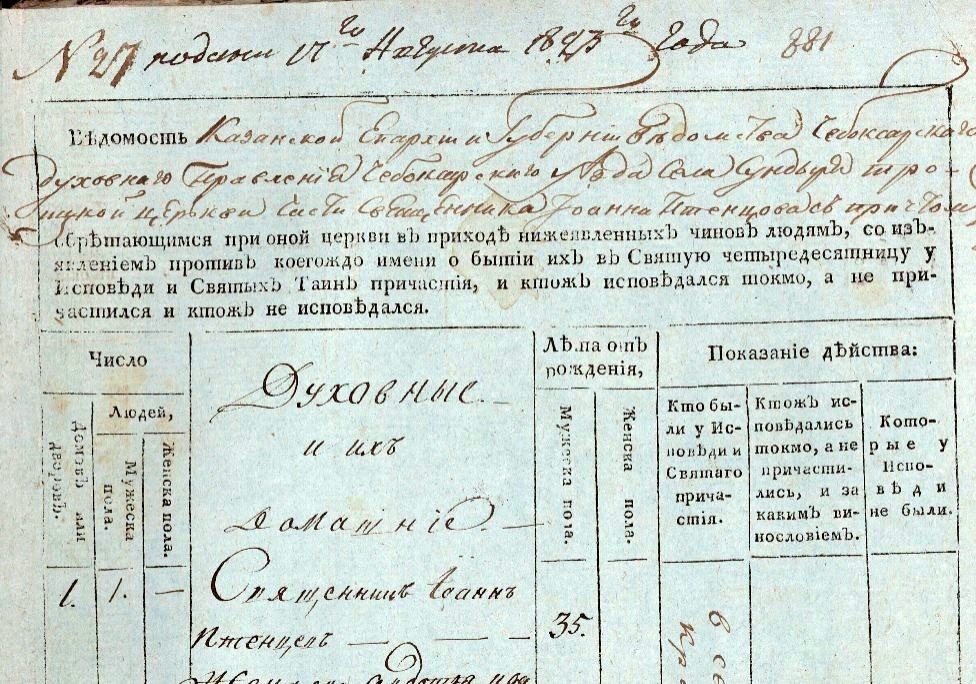 N 27 подано 17го Августа 1823го года 881
Вѣдомость Казанской Епархіи и Губерніи Вѣдомства Чебоксарскаго
духовнаго Правленія Чебоксарскаго уѣзда Села Сундыря Тро-
ицкой церкви части Священника Іоанна Птенцова съ причтомъ
обрѣтающимся при оной церкви въ приходѣ нижеявленныхъ чиновъ людямъ, со изъ-
явленіемъ противъ коегождо имени о бытіи ихъ въ Святую четыредесятницу у
Исповѣди и Святыхъ Таинъ причастія, и ктожъ исповѣдался токмо, а не при-
частился и ктожъ не исповѣдался.
Число
Людей,
Домовъ или
дворовъ.
Мужеска
пола.
Женска пола.
Духовные
и ихъ
домашніе
Лѣта отъ
рожденія,
Мужеска пола.
Женска пола.
Показаніе дѣйства:
Кто бы-
ли у Ис-
повѣди и
Святаго
прича-
стія.
Ктожъ ис-
повѣдались
токмо, а не
причасти-
лись, и за
какимъ ви-
нословіемъ.
Кото-
рые у
Испо-
вѣди
не были.
1. 1. — Священникъ Іоаннъ
Птенцевъ — — — 35.